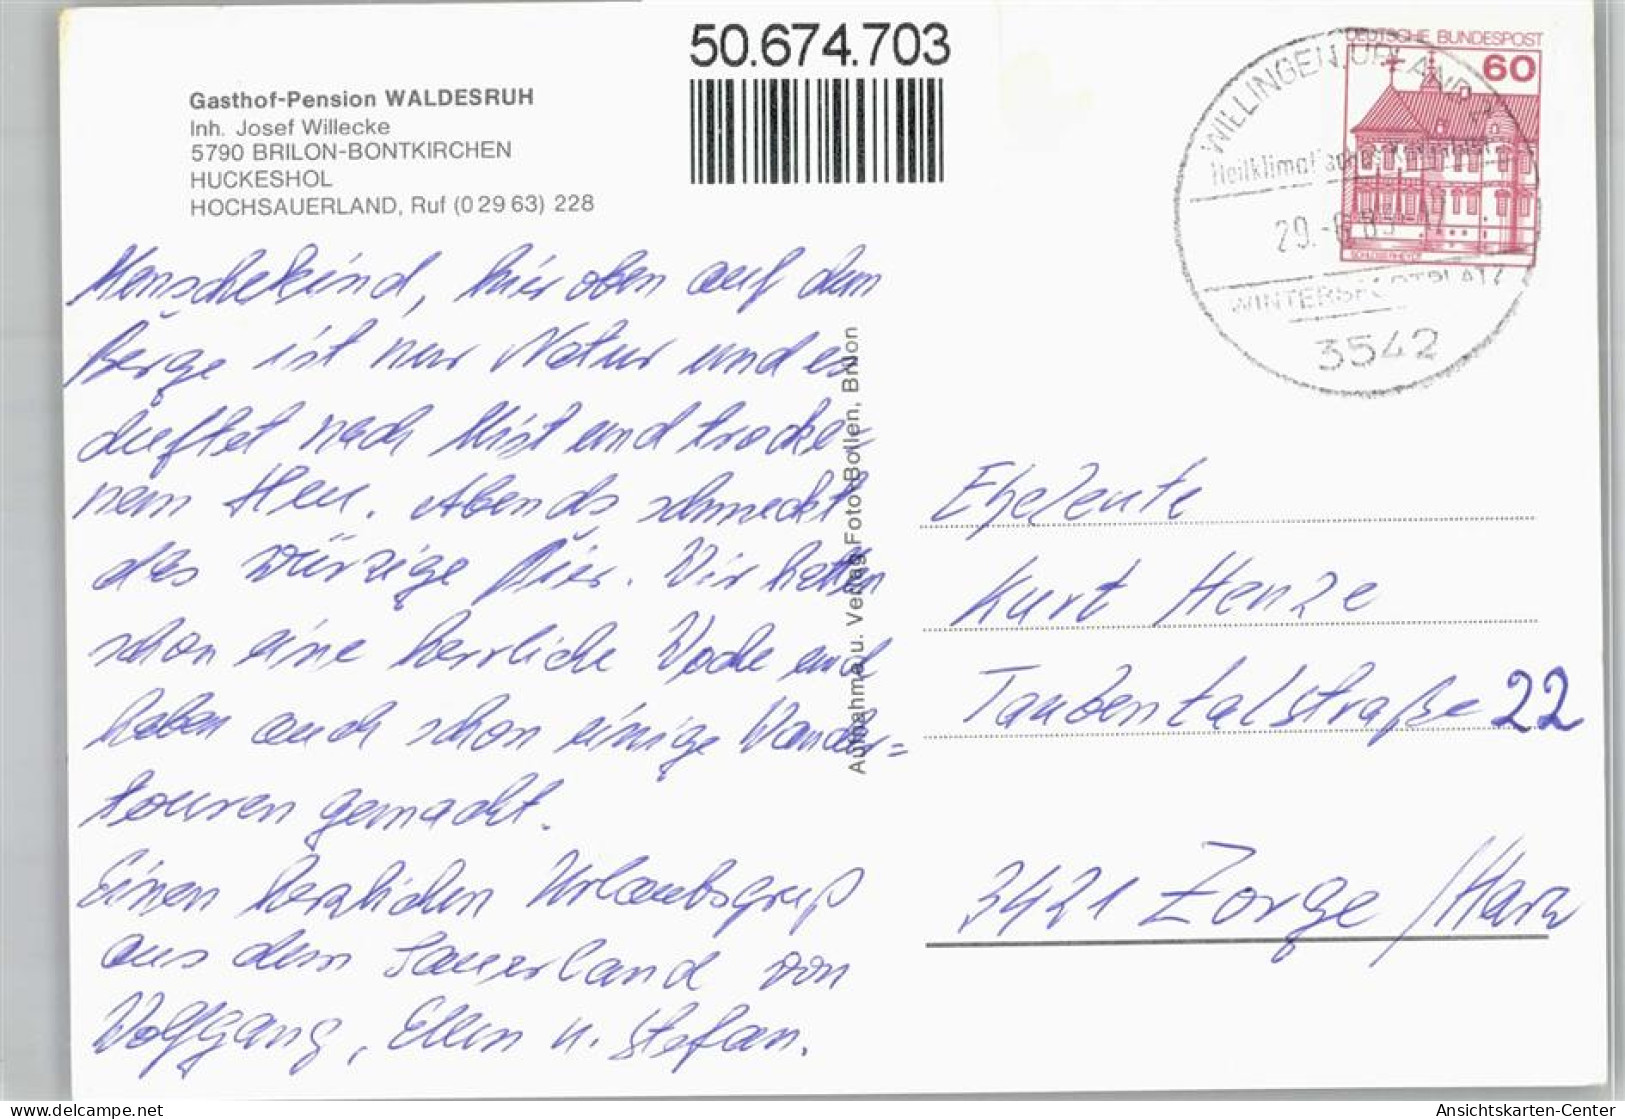 50.674.703
Gasthof-Pension WALDESRUH
Inh. Josef Willecke
5790 BRILON-BONTKIRCHEN
HUCKESHOL
HOCHSAUERLAND, Ruf (0 29 63) 228
Menschekind, hier oben auf dem
Berge ist nur Natur und es
duftet nach Mist und trocke-
nem Heu. Abends schmeckt
das würzige Bier. Wir hatten
schon eine herrliche Woche und
haben auch schon einige Wander=
touren gemacht.
Einen herzlichen Urlaubsgruß
aus dem Sauerland von
Wolfgang, Ellen u. Stefan.
Aufnahme u. Verlag Foto-Bollen, Brilon
DEUTSCHE BUNDESPOST
60
SCHLOSS RHEYDT
WILLINGEN, UPLAND
Heilklimatischer
29.-6.83-17
WINTERSPORTPLATZ
3542
Eheleute
Kurt Henze
Taubentalstraße 22
3421 Zorge /Harz
delcampe.net
Ansichtskarten-Center